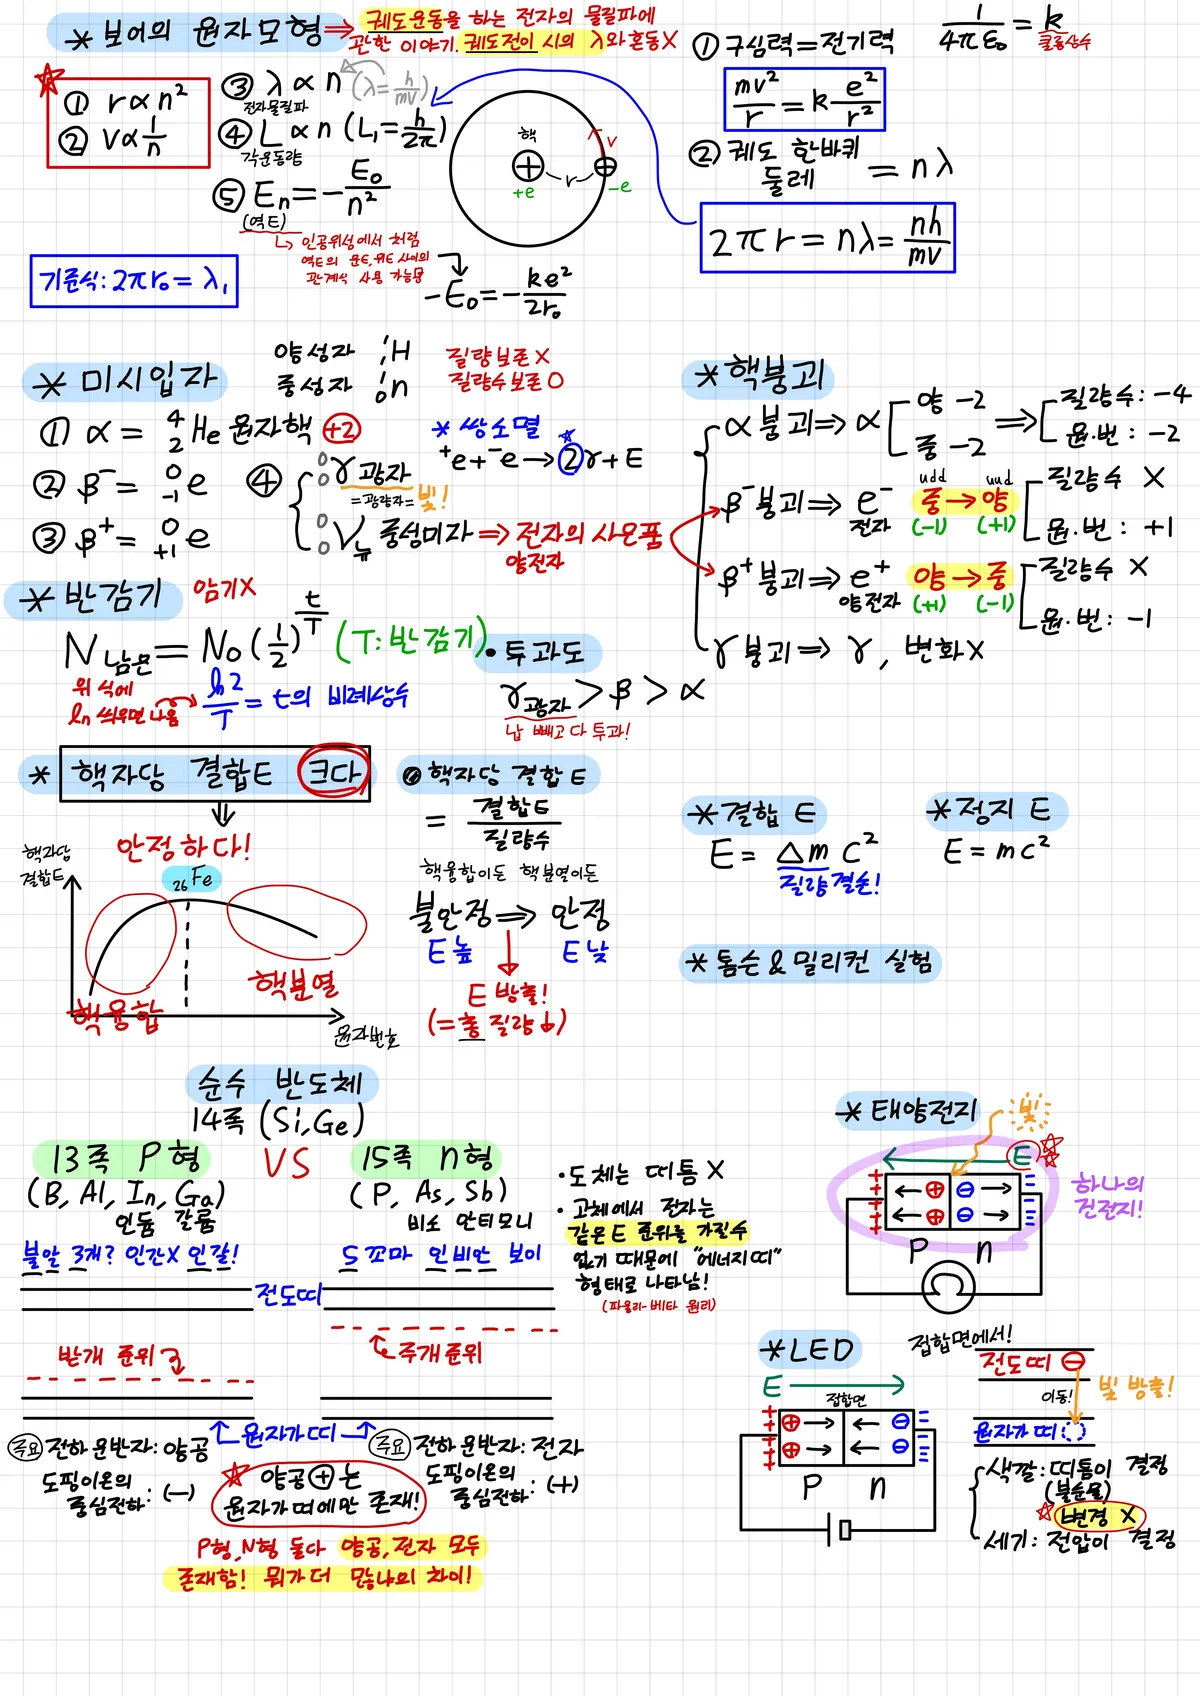 * 보어의 원자모형 ⇒ 궤도운동을 하는 전자의 물질파에
관한 이야기. 궤도전이 시의 λ와 혼동X
① r∝n²
② V∝1/n
③ λ∝n (λ=h/mv)
전자물질파
④ L∝n (L₁=h/2π)
각운동량
⑤ En=-E₀/n²
(역E)
↳ 인공위성에서 처럼
역E의 운E, 위E 사이의
관계식 사용 가능
-E₀=-ke²/2r₀
기준식: 2πr₀=λ₁
핵
+e
r
v
-e
1/4πε₀=k
쿨롱상수
① 구심력=전기력
mv²/r=k e²/r²
② 궤도 한바퀴 둘레 = nλ
2πr=nλ=nh/mv
* 미시입자
양성자 ¹₁H
중성자 ¹₀n
질량보존X
질량수보존O
① α= ⁴₂He 원자핵 +2
② β⁻= ⁰₋₁e
③ β⁺= ⁰₊₁e
④ ⁰₀γ 광자
=광양자=빛!
⁰₀ν 중성미자 ⇒ 전자의 사은품
뉴
양전자
* 쌍소멸
⁺e+⁻e→②γ+E
* 핵붕괴
α붕괴⇒α [양 -2 중 -2 ⇒ [질량수: -4 원.번: -2
β⁻붕괴⇒e⁻ 중→양 [질량수 X 원.번: +1
전자
udd uud
(-1) (+1)
β⁺붕괴⇒e⁺ 양→중 [질량수 X 원.번: -1
양전자
(+1) (-1)
γ붕괴⇒γ, 변화X
* 반감기 암기X
N남은=N₀(1/2)^t/T (T: 반감기)
위 식에
ln 씌우면 나옴
ln2/T = t의 비례상수
• 투과도
γ광자 > β > α
납 빼고 다 투과!
* 핵자당 결합E 크다
⇓
안정하다!
핵자당
결합E
₂₆Fe
핵융합
핵분열
원자번호
핵자당 결합E
= 결합E/질량수
핵융합이든 핵분열이든
불안정⇒안정
E높 E낮
E 방출!
(=총 질량↓)
* 결합 E
E= △m c²
질량결손!
* 정지 E
E=mc²
* 톰슨 & 밀리컨 실험
순수 반도체
14족 (Si, Ge)
13족 P형 VS 15족 n형
(B, Al, In, Ga)
인듐 갈륨
불알 3개? 인간X 인갈!
(P, As, Sb)
비소 안티모니
5꼬마 인비안 보이
전도띠
받개 준위
주개준위
원자가띠
주요 전하 운반자: 양공
도핑이온의
중심전하: (-)
양공⊕는
원자가띠에만 존재!
주요 전하 운반자: 전자
도핑이온의
중심전하: (+)
P형, N형 둘다 양공, 전자 모두
존재함! 뭐가 더 많냐의 차이!
• 도체는 띠틈 X
• 고체에서 전자는
같은 E 준위를 가질수
없기 때문에 "에너지띠"
형태로 나타남!
(파울리-베타 원리)
* 태양전지
빛
E
하나의
건전지!
P n
* LED
E
접합면
P n
접합면에서!
전도띠 ⊖
이동!
빛 방출!
원자가띠
색깔: 띠틈이 결정
(불순물)
변경 X
세기: 전압이 결정